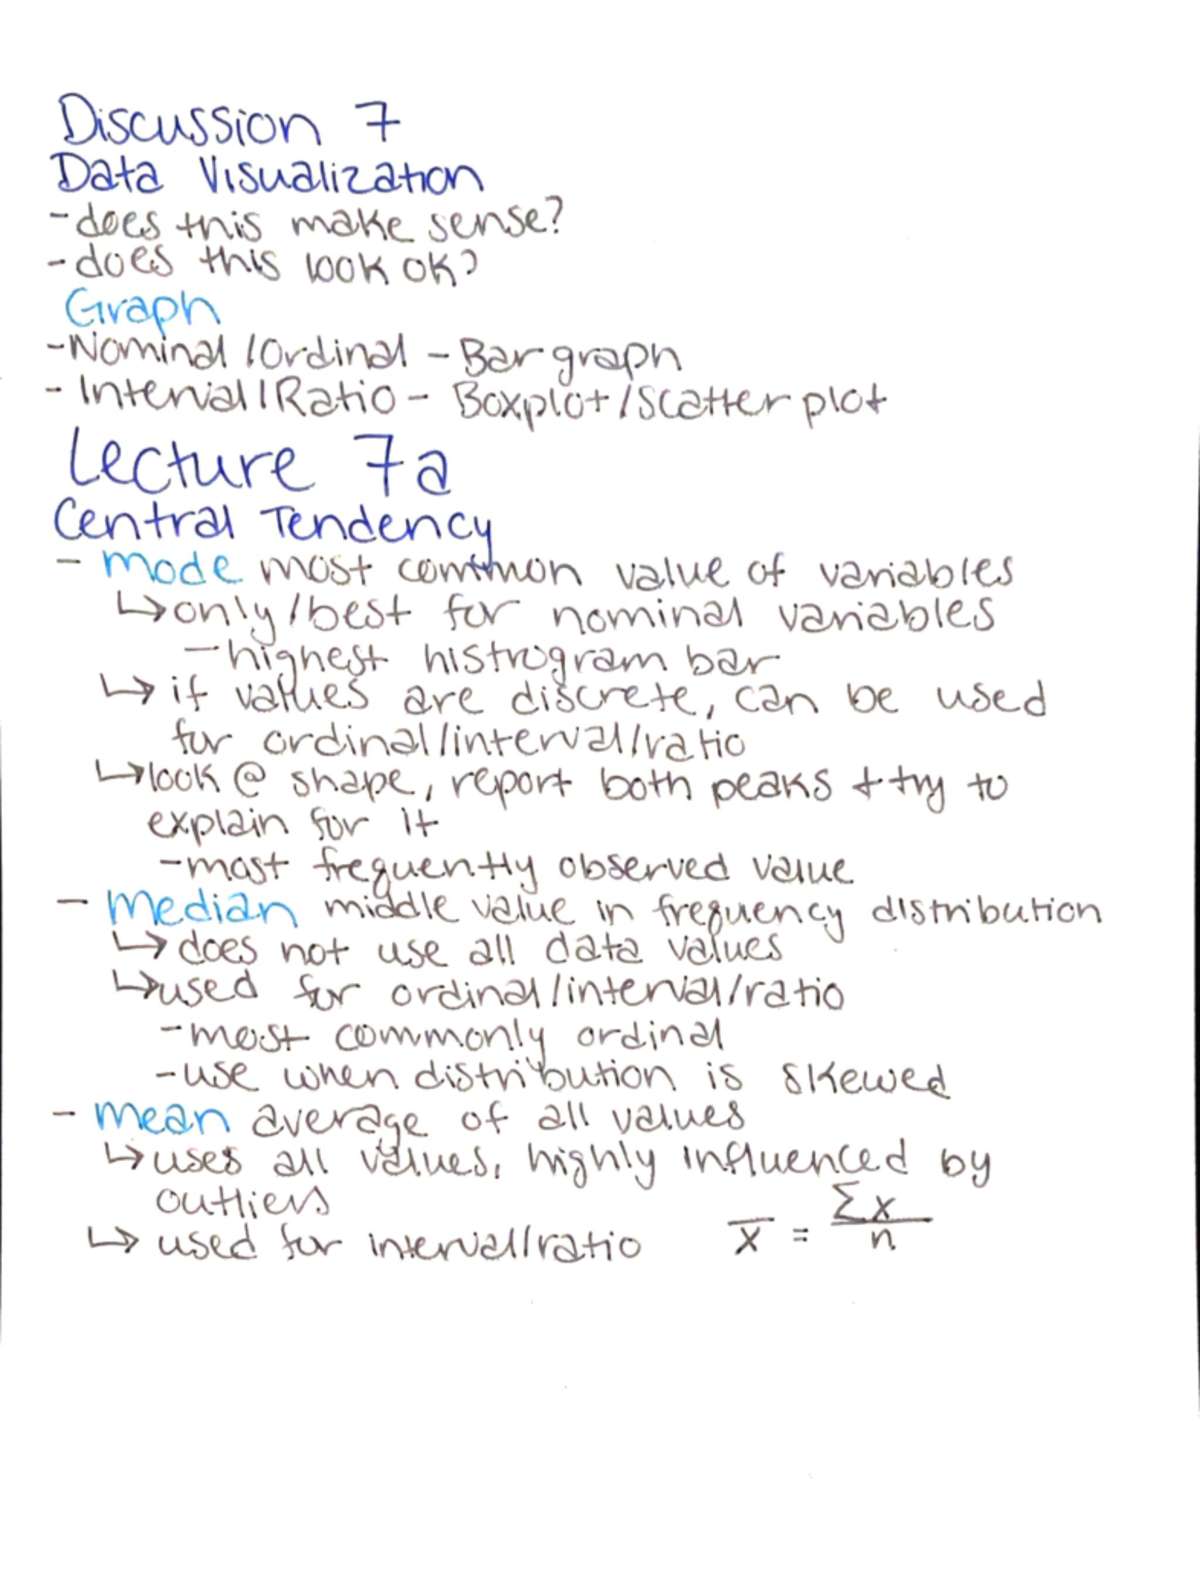 Discussion 7
Data Visualization
- does this make sense?
- does this look ok?
Graph
- Nominal / Ordinal - Bar graph
- Interval / Ratio - Boxplot / Scatter plot
Lecture 7a
Central Tendency
- mode most common value of variables
↳ only / best for nominal variables
- highest histrogram bar
↳ if values are discrete, can be used
for ordinal/interval/ratio
↳ look @ shape, report both peaks + try to
explain for it
- most frequently observed value
- Median middle value in frequency distribution
↳ does not use all data values
↳ used for ordinal/interval/ratio
- most commonly ordinal
- use when distribution is skewed
- mean average of all values
↳ uses all values, highly influenced by
outliers
↳ used for interval/ratio x̄ = Σx/n